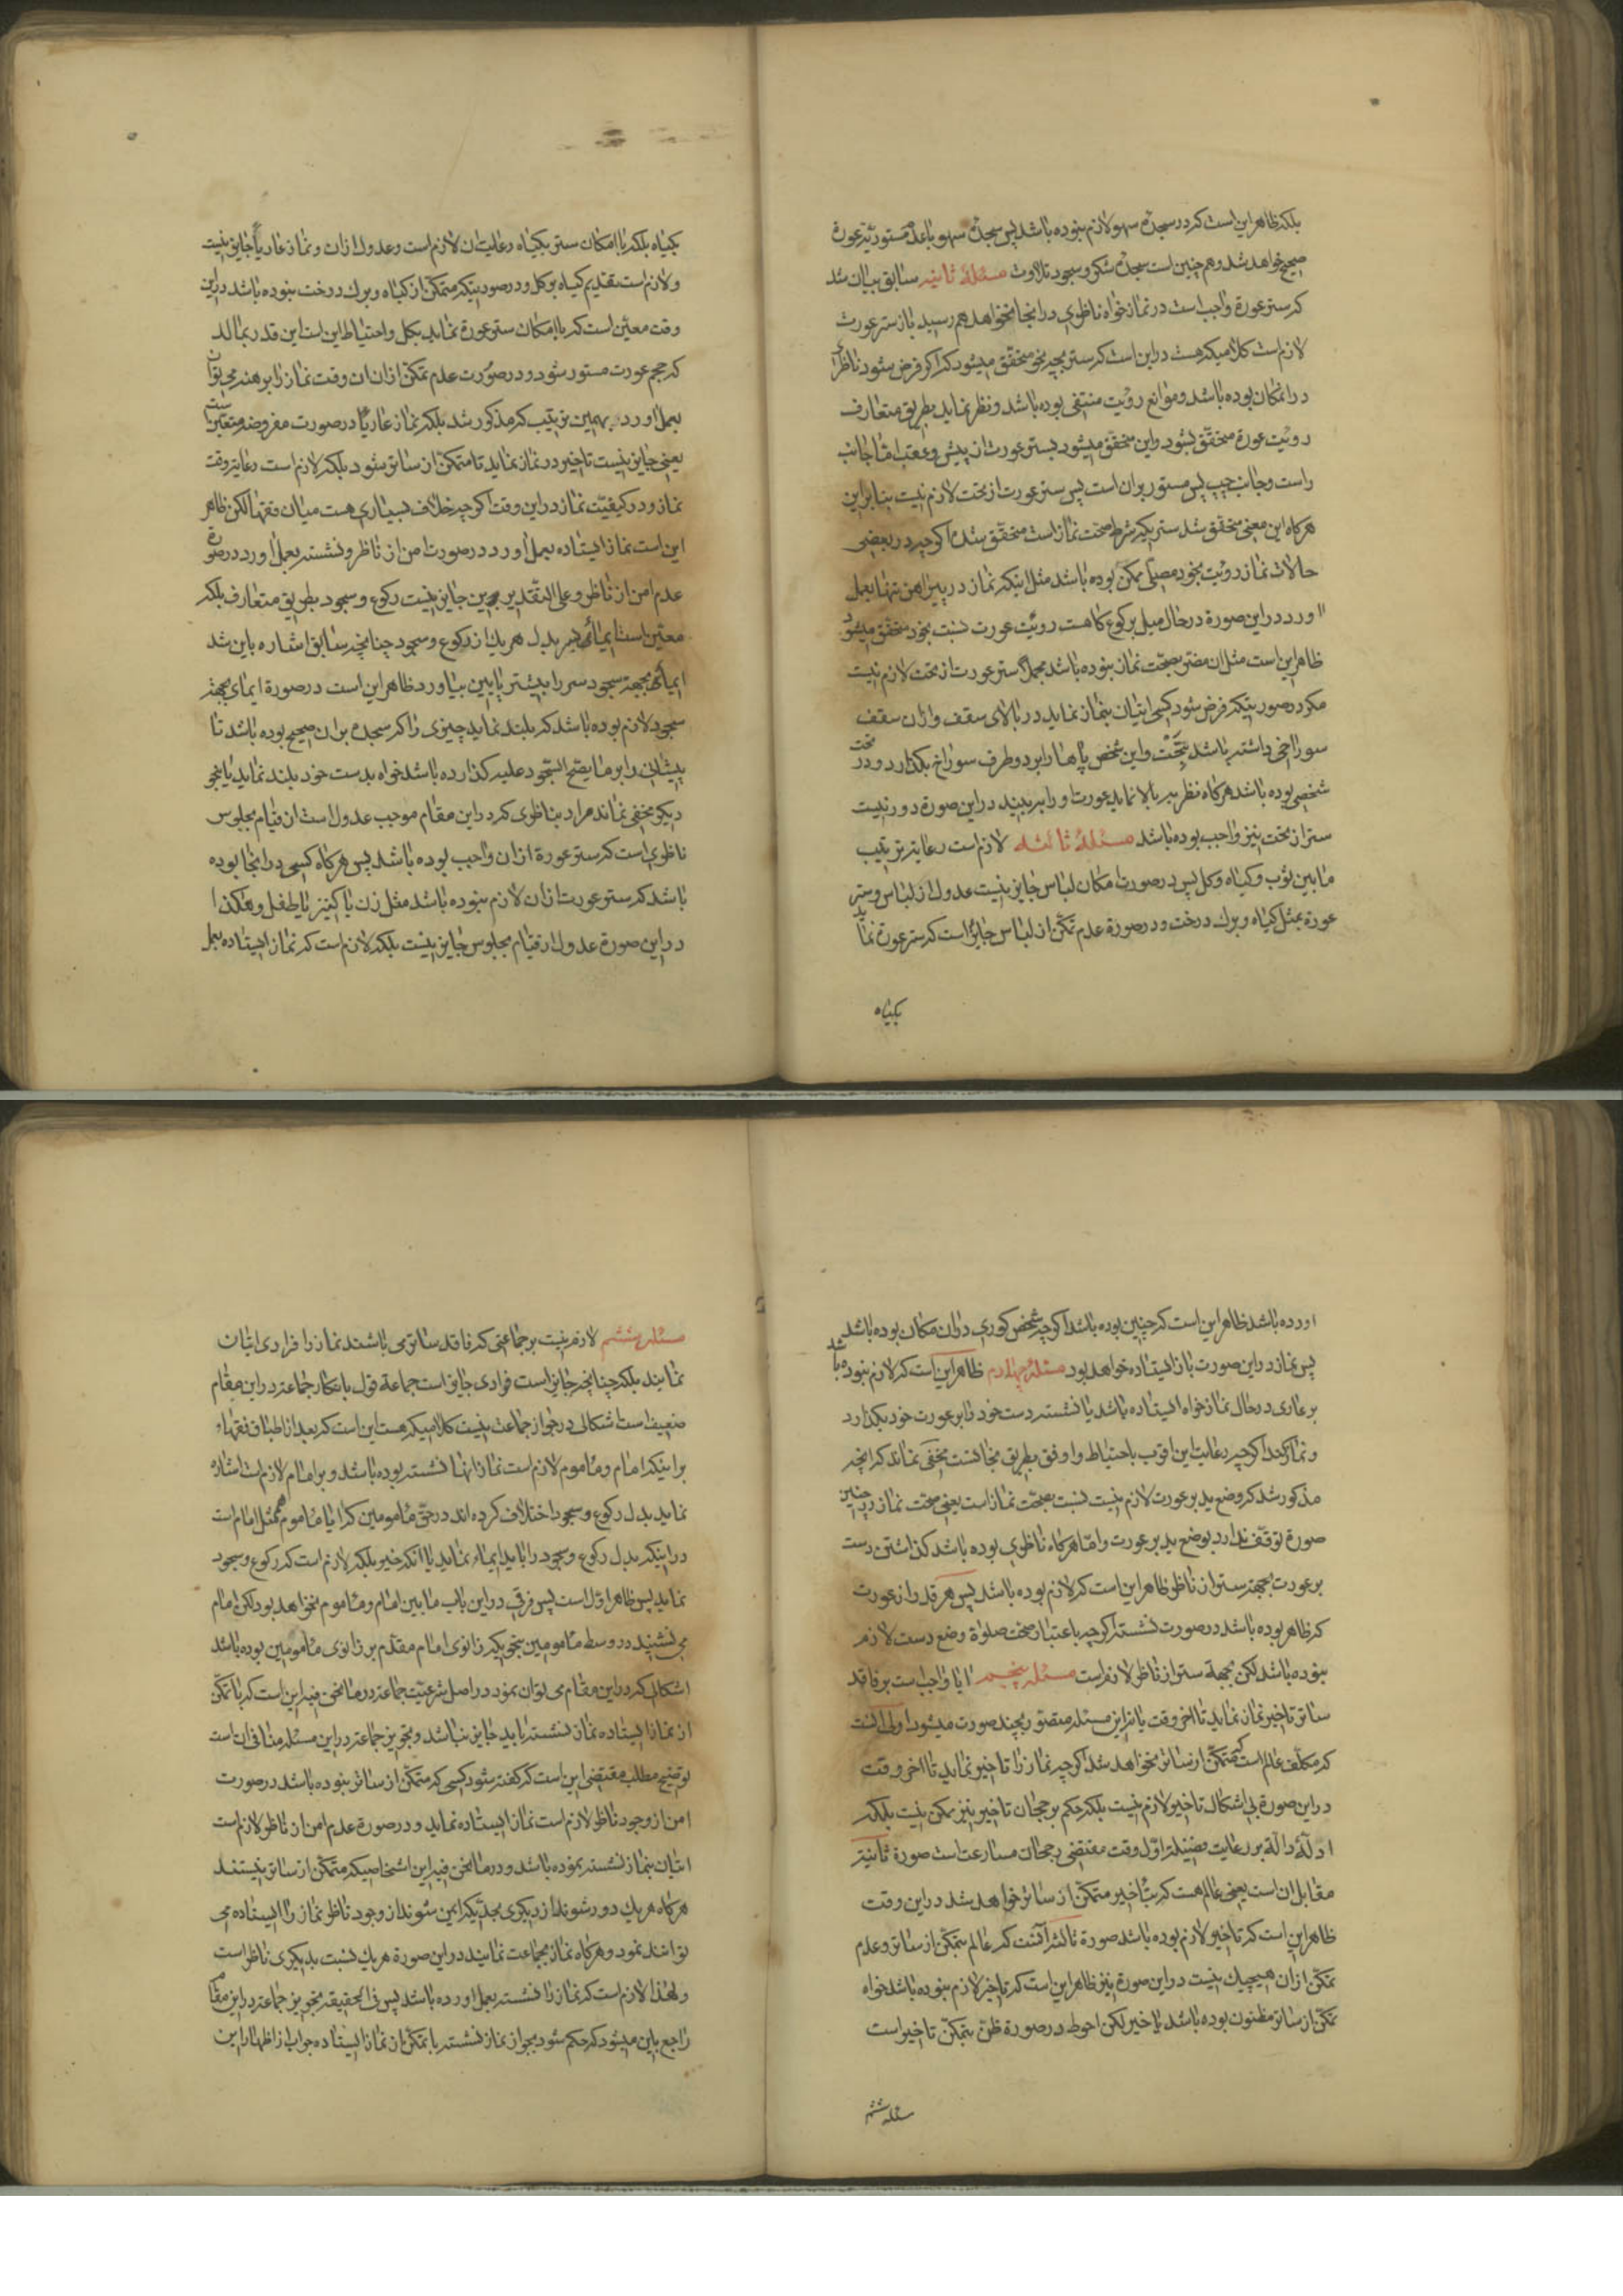 بلکه ظاهر این است که در سجدهٔ سهو لازم نبوده باشد پس سجدهٔ سهو با عدم مستوریة عورة
صحیح خواهد شد و هم چنین است سجدهٔ شکر و سجود تلاوت مسئلهٔ ثانیه سابق بیان شد
که ستر عورة واجب است در نماز خواه ناظری در انجا نخواهد هم رسید باز ستر عورت
لازم است کلامیکه هست در این است که ستر بچه نحو متحقق میشود که اگر فرض شود ناظری
در انمکان بوده باشد و موانع رؤیت منتفی بوده باشد و نظر نماید بطریق متعارف
رویت عورة متحقق نشود و این متحقق میشود بستر عورت از پیش و عقب اما جانب
راست و جانب چپ پس مستور بران است پس ستر عورت از تحت لازم نیست بنابراین
هرگاه این معنی متحقق شد ستریکه شرط صحت نماز است متحقق شده اگر چه در بعضی
حالات نماز رویت بخود مصلی ممکن بوده باشد مثل اینکه نماز در پیراهن تنها بعمل
اورد در این صورة در حال میل برکوع کاهست رویت عورت نسبت بخود متحقق میشود
ظاهر این است مثل ان مضر بصحت نماز نبوده باشد مجملا ستر عورت از تحت لازم نیست
مکر در صورتیکه فرض شود کسی اتیان بنماز نماید در بالای سقف و ان سقف
سوراخی داشته باشد بتحت و این شخص پاها را بر دو طرف سوراخ بکذارد و در تحت
شخصی بوده باشد هرگاه نظر ببالا نماید عورت او را ببیند در این صورة دور نیست
ستر از تحت نیز واجب بوده باشد مسئلهٔ ثالثه لازم است رعایة ترتیب
ما بین ثوب و کیاه و کل پس در صورت امکان لباس جایز نیست عدول از لباس و ستر
عورة بمثل کیاه و برک درخت و در صورة عدم تمکن از لباس جایز است که ستر عورة نماید
بکیاه
بکیاه بلکه با امکان ستر بکیاه رعایت ان لازم است و عدول ازان و نماز عاریاً جایز نیست
و لازم است تقدیم کیاه بر کل و در صورتیکه متمکن از کیاه و برک درخت نبوده باشد در این
وقت معین است که با امکان ستر عورة نماید بکل و احتیاط این است این قدر بمالد
که حجم عورت مستور شود و در صورت عدم تمکن ازان ان وقت نماز را برهنه می توان
بعمل اورد بهمین ترتیب که مذکور شد بلکه نماز عاریاً در صورت مفروضه متعین است
یعنی جایز نیست تاخیر در نماز نماید تا متمکن از ساتر شود بلکه لازم است رعایة وقت
نماز و در کیفیت نماز در این وقت اکر چه خلاف بسیاری هست میان فقها لکن ظاهر
این است نماز ایستاده بعمل اورد در صورت امن از ناظر و نشسته بعمل اورد در صورة
عدم امن از ناظر و علی التقدیرین جایز نیست رکوع و سجود بطریق متعارف بلکه
معین است ایماء بسر بدل هر یک از رکوع و سجود چنانچه سابق اشاره باین شد
ایماء بجهة سجود سر را بیشتر پایین بیاورد ظاهر این است در صورة ایمای بجهة
سجود لازم بوده باشد که بلند نماید چیزی را که سجده بران صحیح بوده باشد تا
پیشانی را بر ما یصح السجود علیه کذارده باشد خواه بدست خود بلند نماید یا بنحو
دیکر مخفی نماند مراد بناظری که در این مقام موجب عدول است از قیام بجلوس
ناظری است که ستر عورة ازان واجب بوده باشد پس هرگاه کسی در انجا بوده
باشد که ستر عورت ازان لازم نبوده باشد مثل زن یا کنیز یا طفل و هکذا
در این صورة عدول از قیام بجلوس جایز نیست بلکه لازم است که نماز ایستاده بعمل
اورده باشد ظاهر این است که چنین بوده باشد اکر چه شخص کوری در ان مکان بوده باشد
پس نماز در این صورت باز ایستاده خواهد بود مسئله چهارم ظاهر این است که لازم نبوده باشد
بر عاری در حال نماز خواه ایستاده باشد یا نشسته دست خود را بر عورت خود بکذارد
و نماز کند اکر چه رعایت این اقرب باحتیاط و اوفق بطریق مجانست مخفی نماند که انچه
مذکور شد که وضع ید بر عورت لازم نیست نسبت بصحت نماز است یعنی صحت نماز در چنین
صورة توقف ندارد بوضع ید بر عورت و اما هرگاه ناظری بوده باشد کذاشتن دست
بر عورت بجهة ستر از ناظر ظاهر این است که لازم بوده باشد پس هر قدر از عورت
که ظاهر بوده باشد در صورت نشسته اکر چه باعتبار صحت صلوة وضع دست لازم
نبوده باشد لکن بجهة ستر از ناظر لازم است مسئله پنجم ایا واجب است بر فاقد
ساتر تاخیر نماز نماید تا اخر وقت یا نه این مسئله متصور بچند صورت میشود اول انست
که مکلف عالم است که متمکن از ساتر نخواهد شد اکر چه نماز را تاخیر نماید تا اخر وقت
در این صورة بی اشکال تاخیر لازم نیست بلکه حکم برجحان تاخیر نیز ممکن نیست بلکه
ادلهٔ دالة بر رعایت فضیلة اول وقت مقتضی رجحان مسارعت است صورة ثانیة
مقابل ان است یعنی عالم هست که بتاخیر متمکن از ساتر خواهد شد در این وقت
ظاهر این است که تاخیر لازم بوده باشد صورة ثالثة آنست که عالم بتمکن از ساتر و عدم
تمکن ازان هیچیک نیست در این صورة نیز ظاهر این است که تاخیر لازم نبوده باشد خواه
تمکن از ساتر مظنون بوده باشد یا خیر لکن احوط در صورة ظن بتمکن تاخیر است
مسئله ششم
مسئله ششم لازم نیست بر جماعتی که فاقد ساتر می باشند نماز را فرادی اتیان
نمایند بلکه چنانچه جایز است فرادی جایز است جماعة قول بانکار جماعة در این مقام
ضعیف است اشکالی در جواز جماعت نیست کلامیکه هست این است که بعد از اطباق فقهاء
بر اینکه امام و ماموم لازم است نماز انها نشسته بوده باشد و بر امام لازم است اشاره
نماید بدل رکوع و سجود اختلاف کرده اند در حق مامومین که ایا ماموم هم مثل امام است
در اینکه بدل رکوع و سجود را باید ایماء نماید یا انکه خیر بلکه لازم است که رکوع و سجود
نماید پس ظاهر اول است پس فرقی در این باب ما بین امام و ماموم نخواهد بود لکن امام
می نشیند در وسط مامومین بنحویکه زانوی امام مقدم بر زانوی مامومین بوده باشد
اشکالی که در این مقام می توان نمود در اصل شرعیت جماعة در ما نحن فیه این است که با تمکن
از نماز ایستاده نماز نشسته باید جایز نباشد و تجویز جماعة در این مسئله منافی ان است
توضیح مطلب مقتضی این است که گفته شود کسی که متمکن از ساتر نبوده باشد در صورت
امن از وجود ناظر لازم است نماز ایستاده نماید و در صورة عدم امن از ناظر لازم است
اتیان بنماز نشسته نموده باشد و در ما نحن فیه این اشخاصیکه متمکن از ساتر نیستند
هرگاه هر یک دور شوند از دیکری بحدیکه ایمن شوند از وجود ناظر نماز را ایستاده می
توانند نمود و هرگاه نماز بجماعت نمایند در این صورة هر یک نسبت بدیکری ناظر است
و لهذا لازم است که نماز را نشسته بعمل اورده باشد پس فی الحقیقه تجویز جماعة در این مقام
راجع باین میشود که حکم شود بجواز نماز نشسته با تمکن از نماز ایستاده جواب از اظهار این